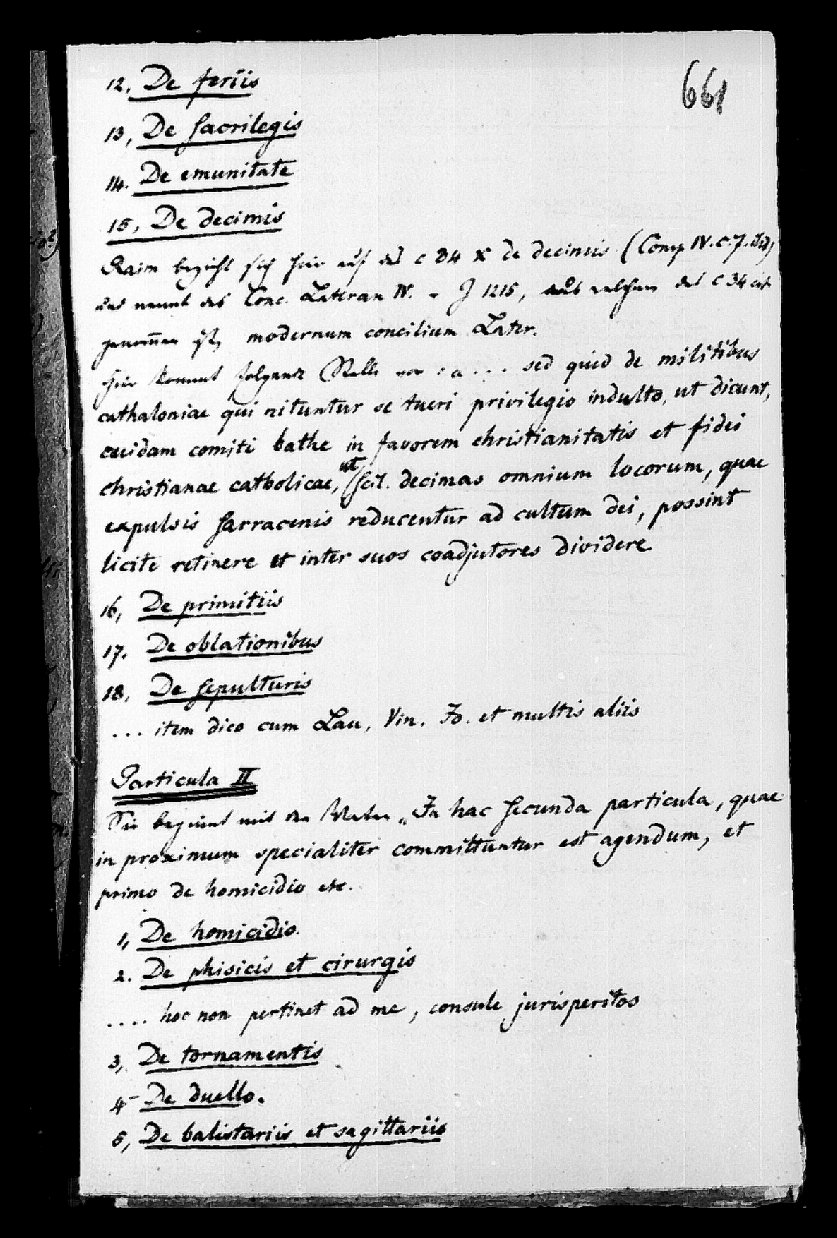 661
12. De feriis
13, De sacrilegis
14. De emunitate
15, De decimis
Raim bezieht sich hier auf das c 34 X de decimis (Comp IV. c. 7.
das nennt das Conc. Lateran IV. v J 1215, aus welchem das c 34 cit
genom̅en ist, modernum concilium Later.
hier kommt folgende Stelle vor : a . . . sed quid de militibus
cathaloniae qui nituntur se tueri privilegio indulto, ut dicunt,
cuidam comiti bathe in favorem christianitatis et fidei
christianae catholicae, ut scil. decimas omnium locorum, quae
expulsis sarracenis reducentur ad cultum dei, possint
licite retinere et inter suos coadjutores dividere
16, De primitiis
17. De oblationibus
18, De sepulturis
. . . item dico cum Lau, Vin. Jo. et multis aliis
Particula II
Sie beginnt mit den Worten „In hac secunda particula, quae
in proximum specialiter committuntur est agendum, et
primo de homicidio etc.
1, De homicidio.
2. De phisicis et cirurgis
. . . . hoc non pertinet ad me, consule jurisperitos
3, De tornamentis
4- De duello.
5, De balistariis et sagittariis